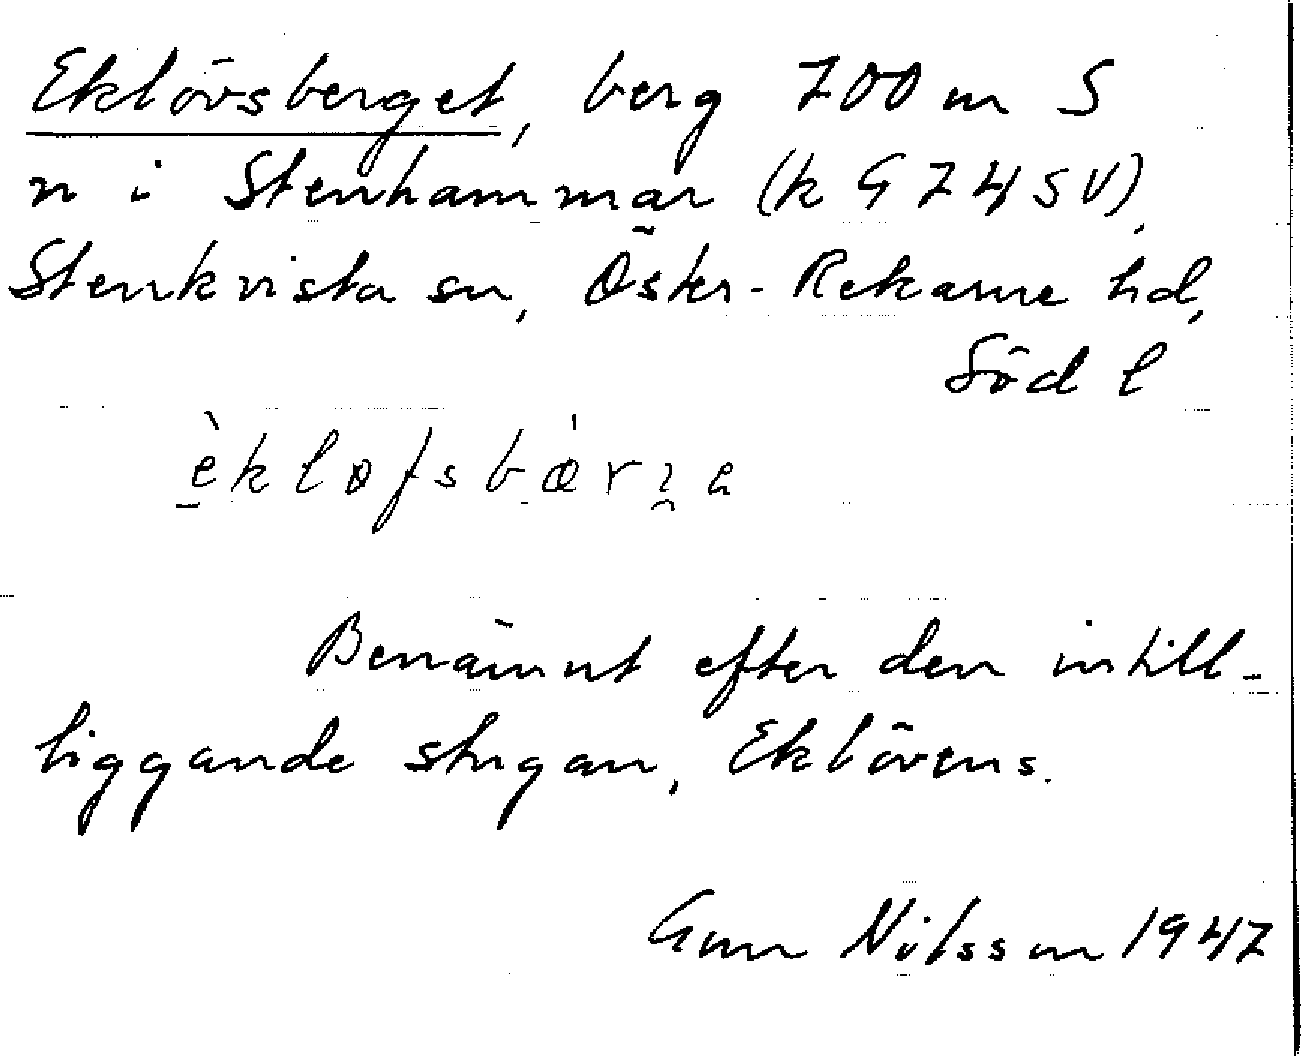 Eklövsberget, berg 700 m S
n i Stenhammar (k G 7 4 SV),
Stenkvista sn, Öster-Rekarne hd,
Söd l
Benämnt efter den intill-
liggande stugan, Eklövens.
Gun Nilsson 1947